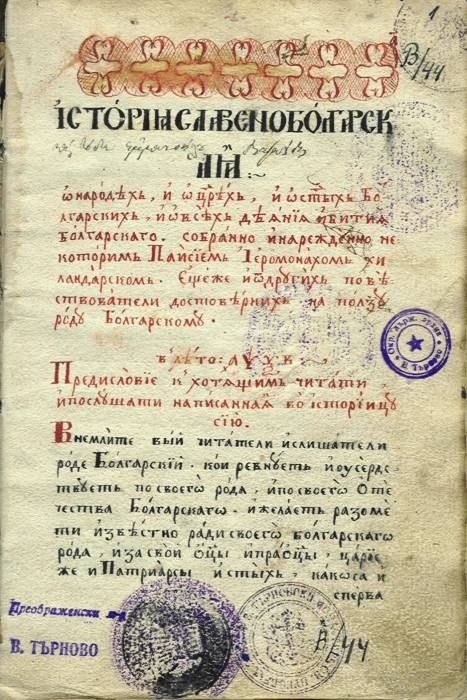 1
В/44
їсто́рїѧ славѣноболгарск
аѧ :
ѡ народѣхъ, и ѡ царѣхъ, и ѡ ст҃ыхъ бо
лгарскихъ, и ѡ всѣхъ дѣѧнїѧ и битиѧ
болгарскаго. собранно и нарежденно не
которим Паисїем Їеромонахом хи
ландарском. Ещеже и ѡ другихъ повѣ
ствователи достовѣрнихъ на ползу
роду Болгарскому.
в лѣто:
Предисловїе к хотѧщим читати
и послушати написаннаѧ во историицу
сїю.
Внемлите вый читатели и слишатели
роде Болгарский. кои ревнуетъ и оусерд
ствуетъ по своего рода, и по своего Оте
чества Болгарскаго. и желаетъ разоме
ти извѣстно ради своего болгарскаго
рода, и за свои ѡ҃цы и праѡ҃цы, царїе
же и Патриарси и ст҃ыхъ, како са и
сперва
Преображенски м-р
В. ТЪРНОВО
Окр. държ. архив
В. Търново
В/44